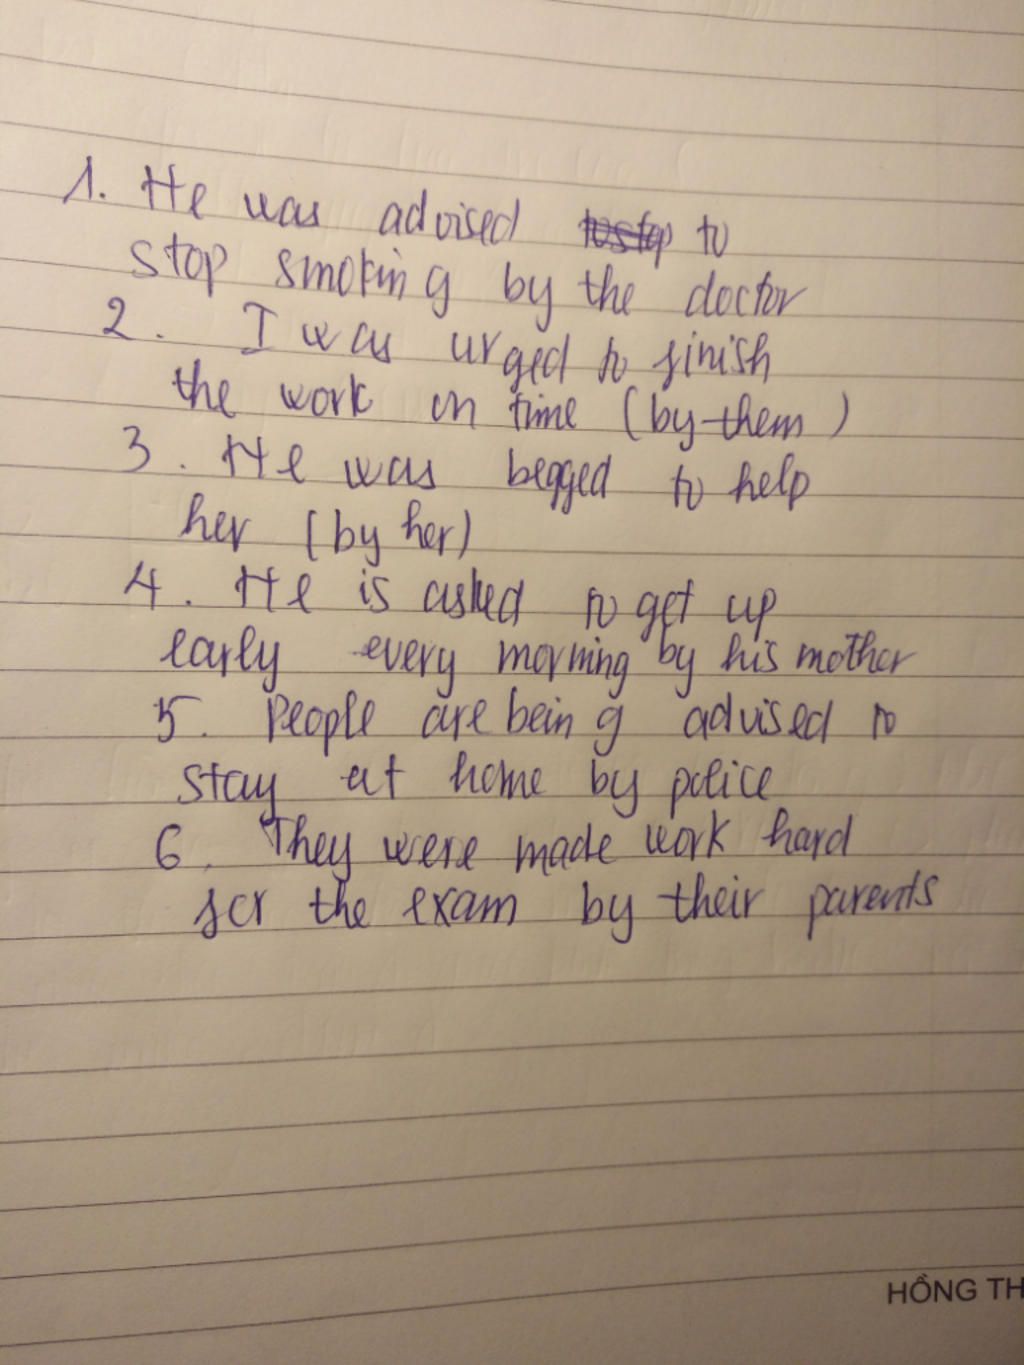 1. He was advised to
stop smoking by the doctor
2. I was urged to finish
the work on time (by them)
3. He was begged to help
her (by her)
4. He is asked to get up
early every morning by his mother
5. People are being advised to
stay at home by police
6. They were made work hard
for the exam by their parents
HỒNG TH